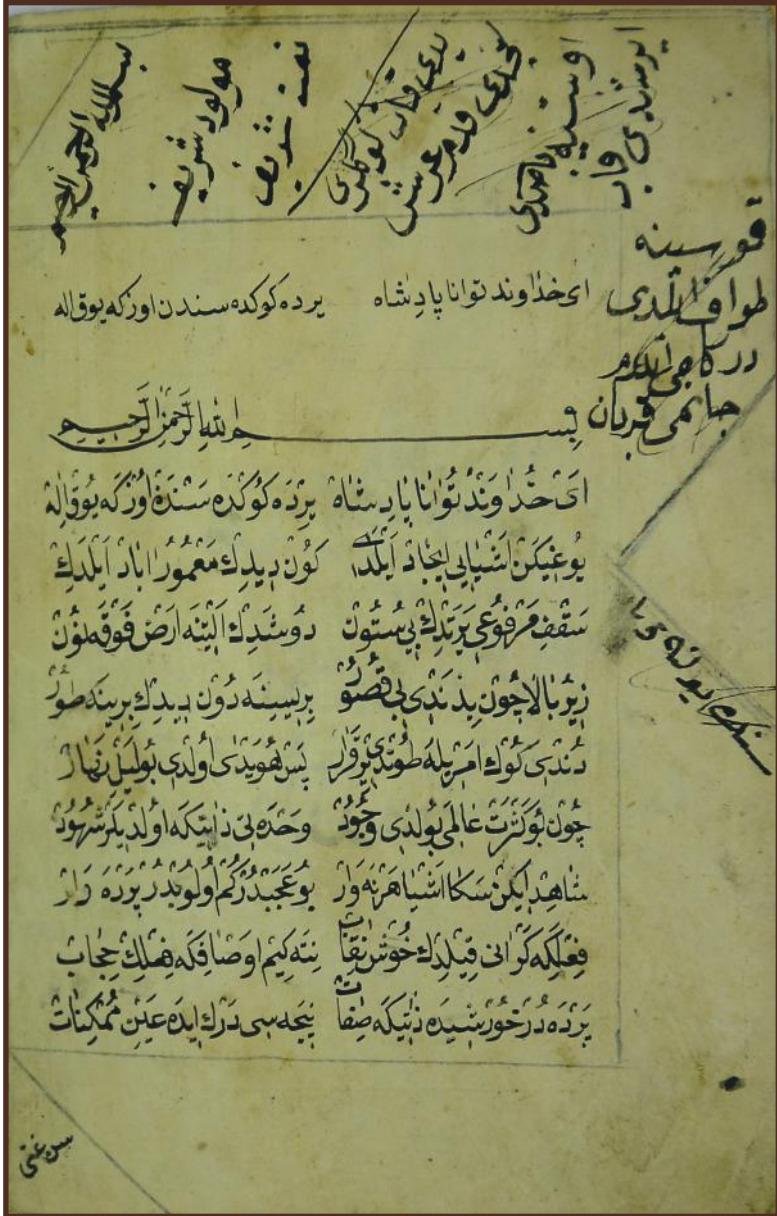 بسم الله الرحمن الرحيم
مولود شريف
نعت شريف
يدي قات كوكلرى
قدم عرش
اوستنه باصدى
ايرشدى قاب
قوسينه
طواف ايلدى
دركاهى
جانمى قربان
اى خداوند توانا پادشاه يرده كوكده سندن اوزكه يوق اله
بِسْــــمِ اللهِ الرَّحْمٰنِ الرَّحِيمِ
اَىْ خُدَاوَنْدْ تُوَانَا پَادِشَاهْ يِرْدَه كُوكْدَه سَنْدَنْ اُوزْكَه يُوقْ اِلٰهْ
يُوغِيكَنْ اَشْيَايِى اِيجَادْ اَيْلَدِكْ كُونْ دِيدِكْ مَعْمُورْ اٰبَادْ اَيْلَدِكْ
سَقْفِ مَرْفُوعِى يَرَتْدِكْ بِى سُتُونْ دُوشَدِكْ اَلْتِنَه اَرْضِ فَوْقَه لْمُونْ
زِيرُ بَالَا چُونْ بِزَنْدِى بِى قُصُورْ بِرِيسِينَه دُونْ دِيدِكْ بِرِينَه طُورْ
دُنْدِى كُوكْ اَمْرِيلَه طُوتْدِى يِرْ قَرَارْ پَسْ هُوَيْدَى اُولْدِى بُو لَيْلِ نَهَارْ
چُونْ بُو كَثْرَتْ عَالَمِى بُولْدِى وُجُودْ وَحْدَه تِى ذَاتِكَه اُولْدِيلَرْ شُهُودْ
شَاهِدْ اِيكَنْ سَكَا اَشْيَا هَرْ نَه وَارْ بُو عَجَبْدُرْ كِمْ اُولُوبْدُرْ پَرْدَه دَارْ
فِعْلِكَه كَرَانِى قِيلْدِكْ خُوشْ نِقَابْ نِتَه كِيمْ اَوْصَافِكَه فِعْلِكْ حِجَابْ
پَرْدَه دُرْ خُورْشِيدَه ذَاتِكَه صِفَاتْ نِيجَه سِى دَرْكْ اِيدَه عَيْنِ مُمْكِنَاتْ